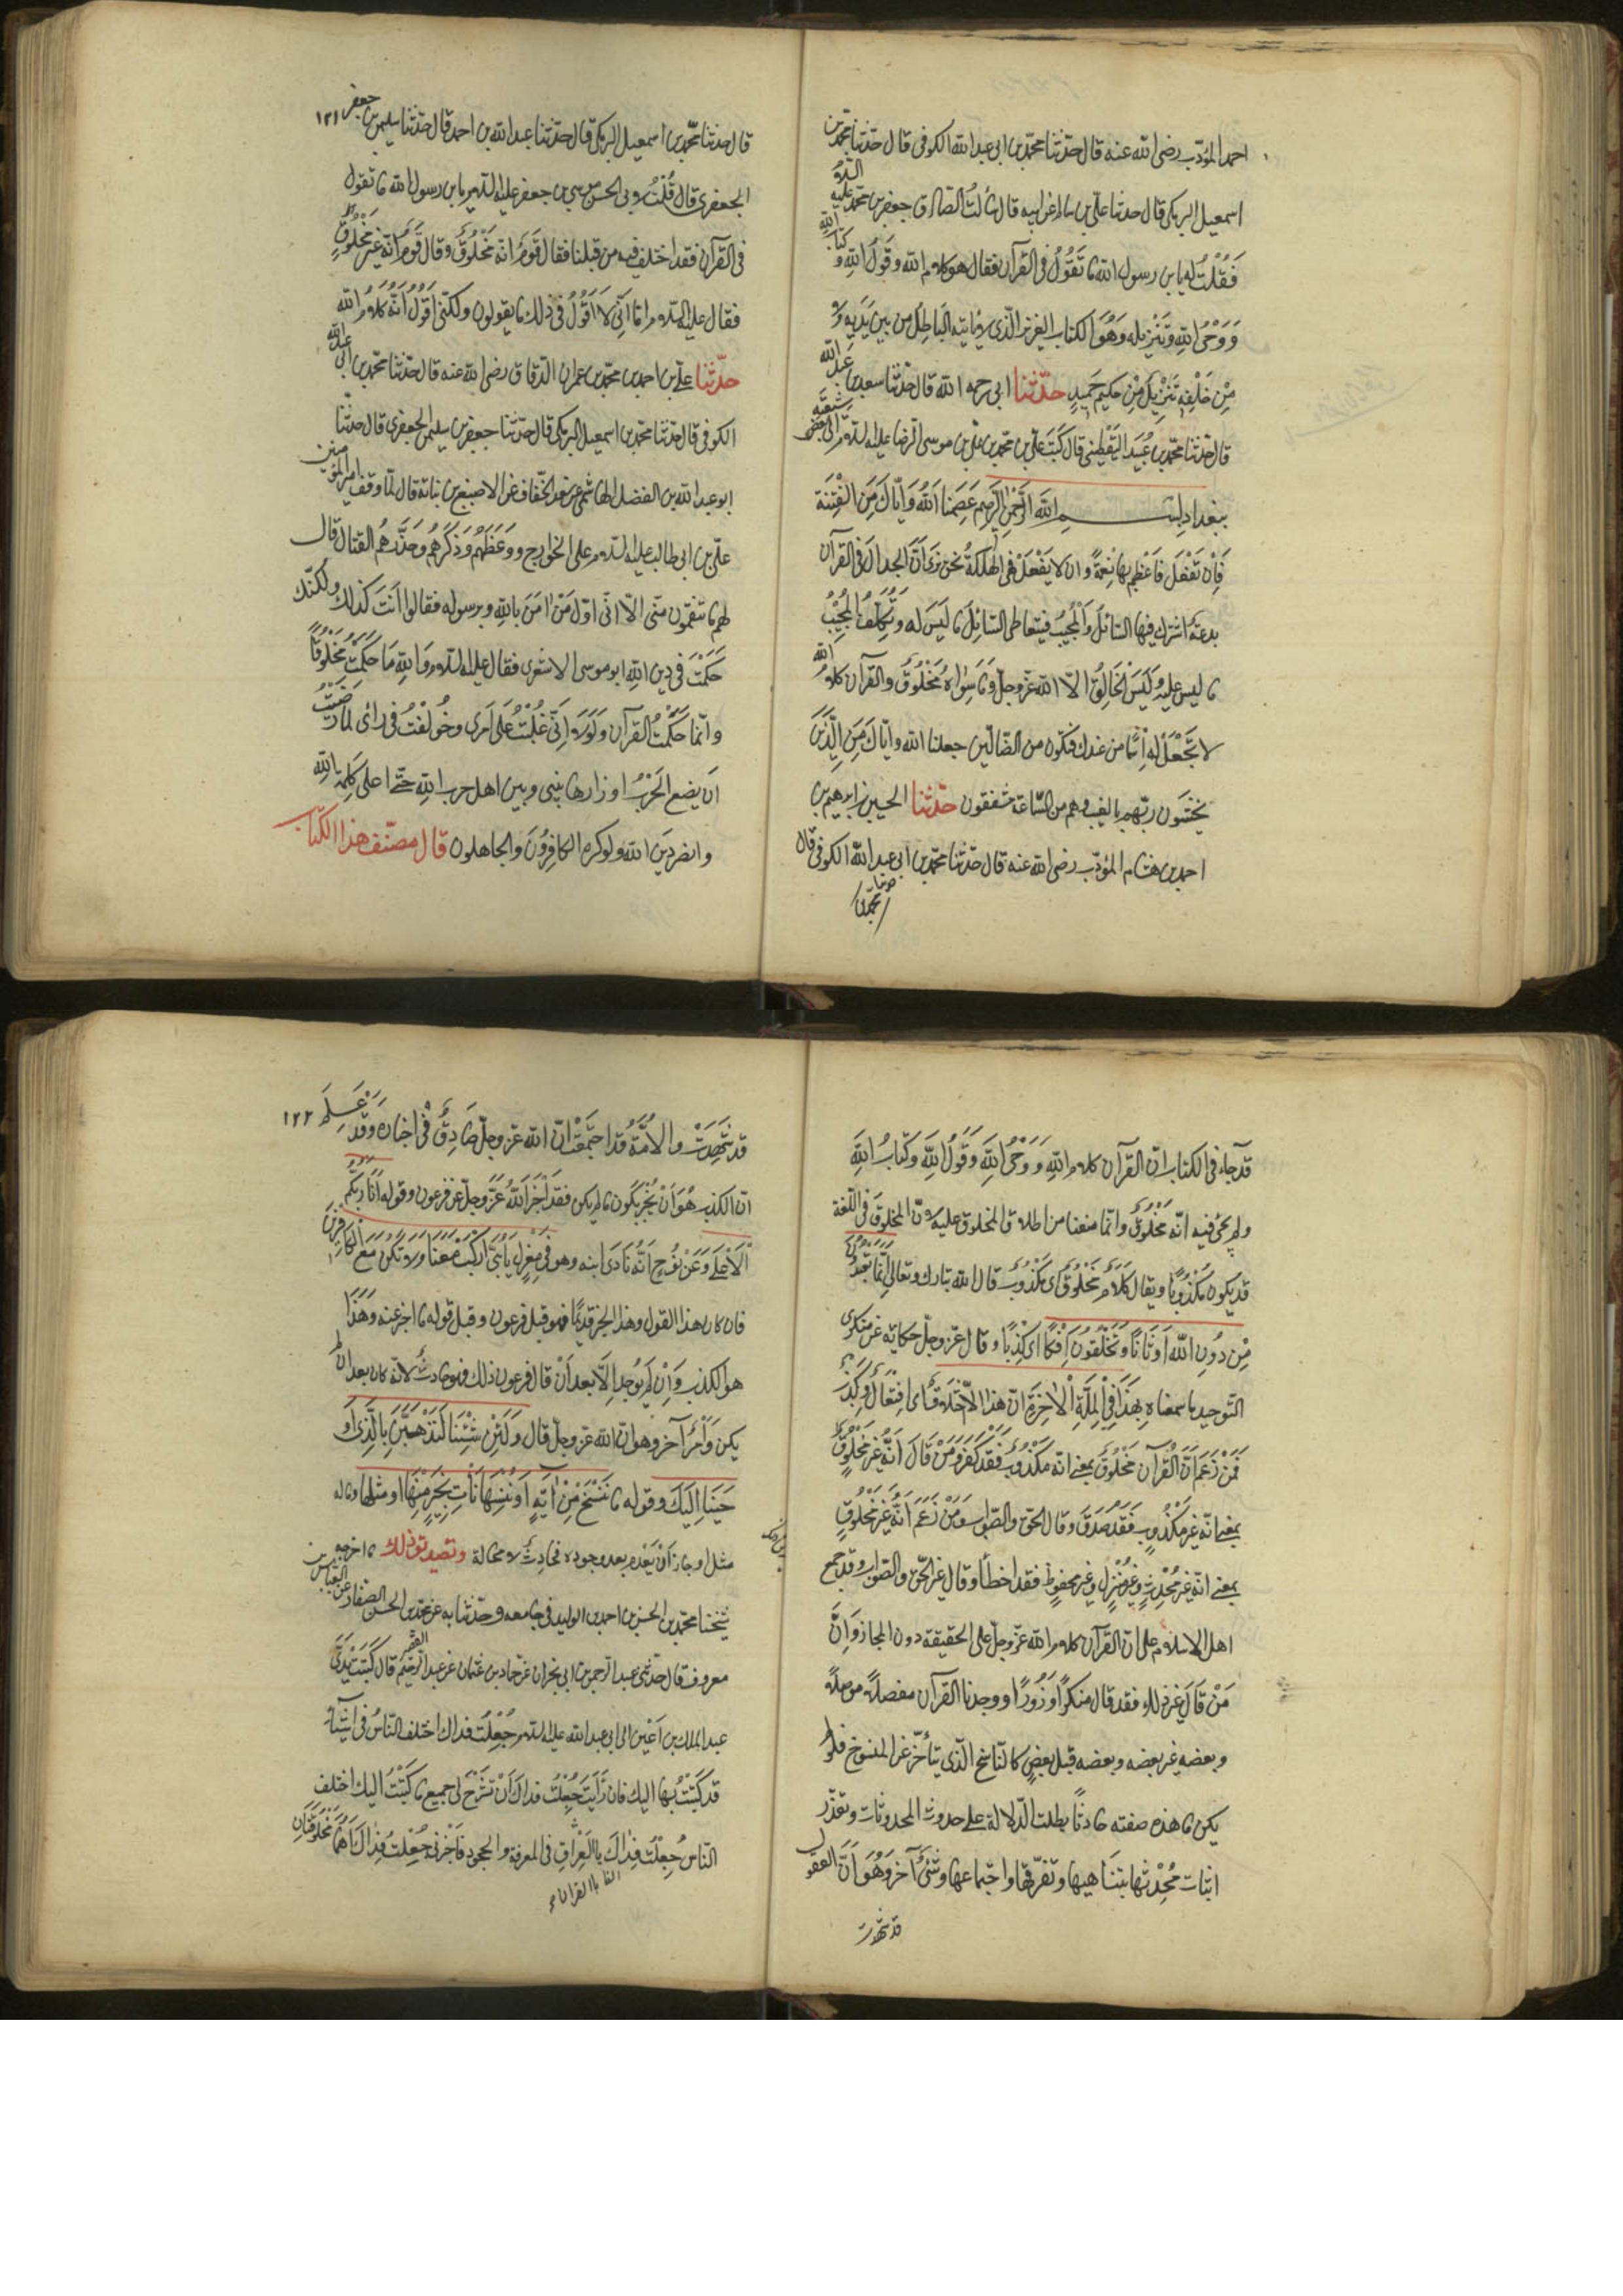 احمد المؤدّب رضى الله عنه قال حدّثنا محمّد بن ابى عبد الله الكوفى قال حدّثنا محمّد بن
اسمعيل البرمكى قال حدثنا علىّ بن سالم عن ابيه قال سألت الصّادق جعفر بن محمّد عليه السّلام
فَقُلْتُ له يا بن رسول الله ما تَقُوْلُ فى القرآن فقال هو كلام الله وقَولُ اللهِ وكتاب الله
وَوَحْىُ اللهِ وتَنْزِيله وَهُوَ الكتاب العزيز الّذى لا يأتيه البَاطِلُ من بين يَدَيهِ ولا
مِنْ خَلْفِهِ تَنْزِيْلٌ مِنْ حكيمٍ حَمِيدٍ حدّثنا ابى رحمه الله قال حدّثنا سعد بن عبد الله
قال حدّثنا محمّد بن عُبَيد اليَقْطِينى قال كَتَبَ علىّ بن محمّد بن علىّ بن موسى الرضا عليه السّلام الى بعض شيعته
ببغداد بسم الله الرّحْمٰنِ الرّحِيم عَصَمنا اللهُ وَايّاكَ مِنَ الْفِتْنَة
فَاِنْ تَفْعَل فَاَعْظِم بها نِعمةً وان لا يَفْعَلْ فهى الهلكةُ نحن نرى اَنَّ الجدالَ فى القرآن
بدعةٌ اشترك فيها السّائلُ وَالْمُجِيْبُ فيتعاطى السّائِلُ ما لَيسَ له وَتَكَلّفُ المُجِيْبُ
ما ليس عليهِ وَلَيسَ الْخَالِقُ الّا الله عزّوجلّ وَمَا سِوَاهُ مَخْلُوقٌ والقرآن كلامُ الله
لا تَجْعَلْ لهُ اِسْمًا من عندك فتكون من الضّالّين جعلنا الله وايّاكَ مِنَ الَّذِيْنَ
يخشَون ربّهم بالغيب وهم من السّاعة مشفقون حدّثنا الحسين بن ابراهيم بن
احمد بن هشام المؤدّب رضى الله عنه قال حدّثنا محمّد بن ابى عبد الله الكوفى قال
حدثنا محمّد بن
١٢١
قال حدثنا محمّد بن اسمعيل البرمكى قال حدّثنا عبد الله بن احمد قال حدّثنا سليمن بن جعفر
الجعفرى قال قُلْتُ لابى الحسن موسى بن جعفر عليه السّلم يا بن رسول الله ما تقول
فى القرآن فقد اختلف فيه من قبلنا فقال قَومٌ انّه مَخْلُوقٌ وقال قَومٌ انّه غير مَخْلُوقٍ
فقال عليه السّلام امّا اَنّى لَا اَقُوْلُ فى ذلك ما يقولون ولكنّى اَقُوْلُ اَنَّهُ كلامُ الله
حدّثنا علىّ بن احمد بن محمّد بن عمران الدّقاق رضى الله عنه قال حدّثنا محمّد بن ابى عبد الله
الكوفى قال حدّثنا محمّد بن اسمعيل البرمكى قال حدّثنا جعفر بن سليمن الجعفرى قال حدّثنا
ابو عبد الله بن الفضل الهاشمى عن سعد الخفّاف عن الاصبغ بن نباتة قال لمّا وقف امير المؤمنين
علىّ بن ابى طالب عليه السّلام على الخوارج ووَعَظَهُم وَذَكَّرَهُم وحَذّرهُم القتال قال
لهم ما تنقمون منّى الّا انّى اوّل مَنْ اٰمَنَ بالله وبرسوله فقالوا اَنتَ كذلك ولكنّك
حَكّمْتَ فى دين اللهِ ابو موسى الاشعرى فقال عليه السّلام وَاللهِ مَا حَكّمتُ مَخْلُوقًا
وانّما حَكَّمْتُ القرآن وَلَولا اِنّى غُلِبْتُ عَلى اَمرى وخُولِفْتُ فى رائى لما رَضِيْتُ
اَن يضع الحَرْبُ اوزارها بينى وبين اهل حرب اللهِ حتّى اعلى كلمة الله
وانصر دينَ الله ولو كره الكافِرُونَ والجاهلون قال مصنّف هذا الكتاب
قد جاء فى الكتاب انّ القرآن كلام اللهِ وَوَحْىُ اللهِ وقَولُ اللهِ وَكتابُ اللهِ
ولم يجئ فيه انّه مَخْلُوقٌ وانّما منعنا من اطلاق المخلوق عليه لانّ المخلوق فى اللّغة
قد يكون مَكْذُوبًا ويقال كَلَامٌ مَخْلُوقٌ اى مكذُوبٌ قال الله تبارك وتعالى اِنّما تَعْبُدُونَ
مِنْ دُونِ اللهِ اَوثَانًا وَتَخْلُقُونَ اِفْكًا اى كِذْبًا وقال عزّوجلّ حكاية عن منكرى
التّوحيد ما سمعناه بِهٰذَا فِى الْمِلّةِ الْاٰخِرَةِ ان هذا الّا اخْتِلَاقٌ اى افتِعَالٌ وكِذْبٌ
فَمَنْ زَعَمَ اَنّ الْقُرآن مَخْلُوقٌ بمعنى انّه مكذُوبٌ فَقَدْ كَفَرَ وَمَنْ قَالَ اَنَّهُ غير مَخْلُوقٍ
بمعنى انّه غير مَكْذُوبٍ فَقَدْ صَدَقَ وقال الحقّ والصّواب وَمَنْ زَعَمَ اَنّهُ غَيرُ مَخْلُوقٍ
بمعنى انّه غير مُحْدَثٍ وغيرُ مُنْزَلٍ وغير محفوظ فقد اخطأ وقال غير الحَقّ والصّواب وقد جمع
اهل الاسلام على انّ القرآن كلام الله عزّوجلّ على الحقيقة دون المجاز وَاِنَّ
مَنْ قَالَ غير ذلك فقد قال منكرًا وزُورًا ووجدنا القرآن مفصلاً وموصلاً
وبعضه غير بعضه وبعضه قبل بعضٍ كالنّاسخ الّذى يتأخّر عن المنسوخ فلو لم
يكن ما هذه صفته حادثًا بطلت الدّلالة على حدوث المحدثات وتعذّر
اثبات مُحْدِثها بتناهيها وتفرّقها واجتماعها وشَىءٌ آخر وَهُوَ اَنّ العقول
قد شهدت
١٢٢
قد شَهِدَتْ والاُمّةُ قد اجتَمَعَتْ انّ الله عزّوجلّ صَادِقٌ فْى اخباره وَقد عَلِمَ
انّ الكذب هُوَ اَنْ يُخْبِرَ بكَون ما لم يكن فقد اَخْبَرَ اللهُ عَزّوجلّ عن فرعون وقوله اَنَا رَبُّكُم
الْاَعْلٰى وَعَنْ نُوْحٍ اَنّهُ نَادَى ابنه وهو فى مَعْزِلٍ يَا بُنَىّ ارْكَبْ مَعَنَا وَلا تَكُنْ مَعَ الْكَافِرِيْنَ
فان كان هذا القول وهذا الخبر قديمًا فهو قبل فرعون وقبل قوله ما اخبر عنه وَهٰذَا
هو الكذب وَاِنْ لَم يُوجد اِلّا بعد اَنْ قال فرعون ذلك فهو حادثٌ لانّه كان بعد ان لم
يكن وَاَمرٌ آخر وهو ان الله عزّوجلّ قال وَلَئِنْ شِئْنَا لَنَذْهَبَنَّ بِالَّذِى اَوْ
حَيْنَا اِلَيكَ وقوله ما نَنْسَخْ مِنْ اٰيَةٍ اَوْ نُنْسِهَا نَأتِ بِخَيْرٍ مِنْهَا او مثلها وما له
مثل او جاز اَنْ يُعْدَم بعد وجوده فحادِثٌ لا محالة وتصديق ذلك ما اخرجه
شيخنا محمّد بن الحسن بن احمد بن الوليد فى جامعه وحدّثنا به عن محمّد بن الحسن الصفّار عن العبّاس بن
معروف قال حدّثنى عبد الرحمن بن ابى نجران عن حمّاد بن عثمان عن عبد الرّحيم القصير قال كَتَبْتُ عَلى يَدَى
عبد الملك بن اَعْين الى ابى عبد الله عليه السّلم جُعِلْتُ فداك اختلف النّاسُ فى اشيَاءَ
قد كَتَبْتُ بها اليك فان رَأَيتَ جُعِلْتُ فداك اَنْ تَشْرَحَ لى جميع ما كَتَبْتُ اليك اختلف
النّاس جُعِلْتُ فِداكَ بالعِرَاقِ فى المعرفة والجحود فاَخْبِرنى جُعِلْتُ فِدَاكَ اَهُمَا مَخْلُوقَتَانِ